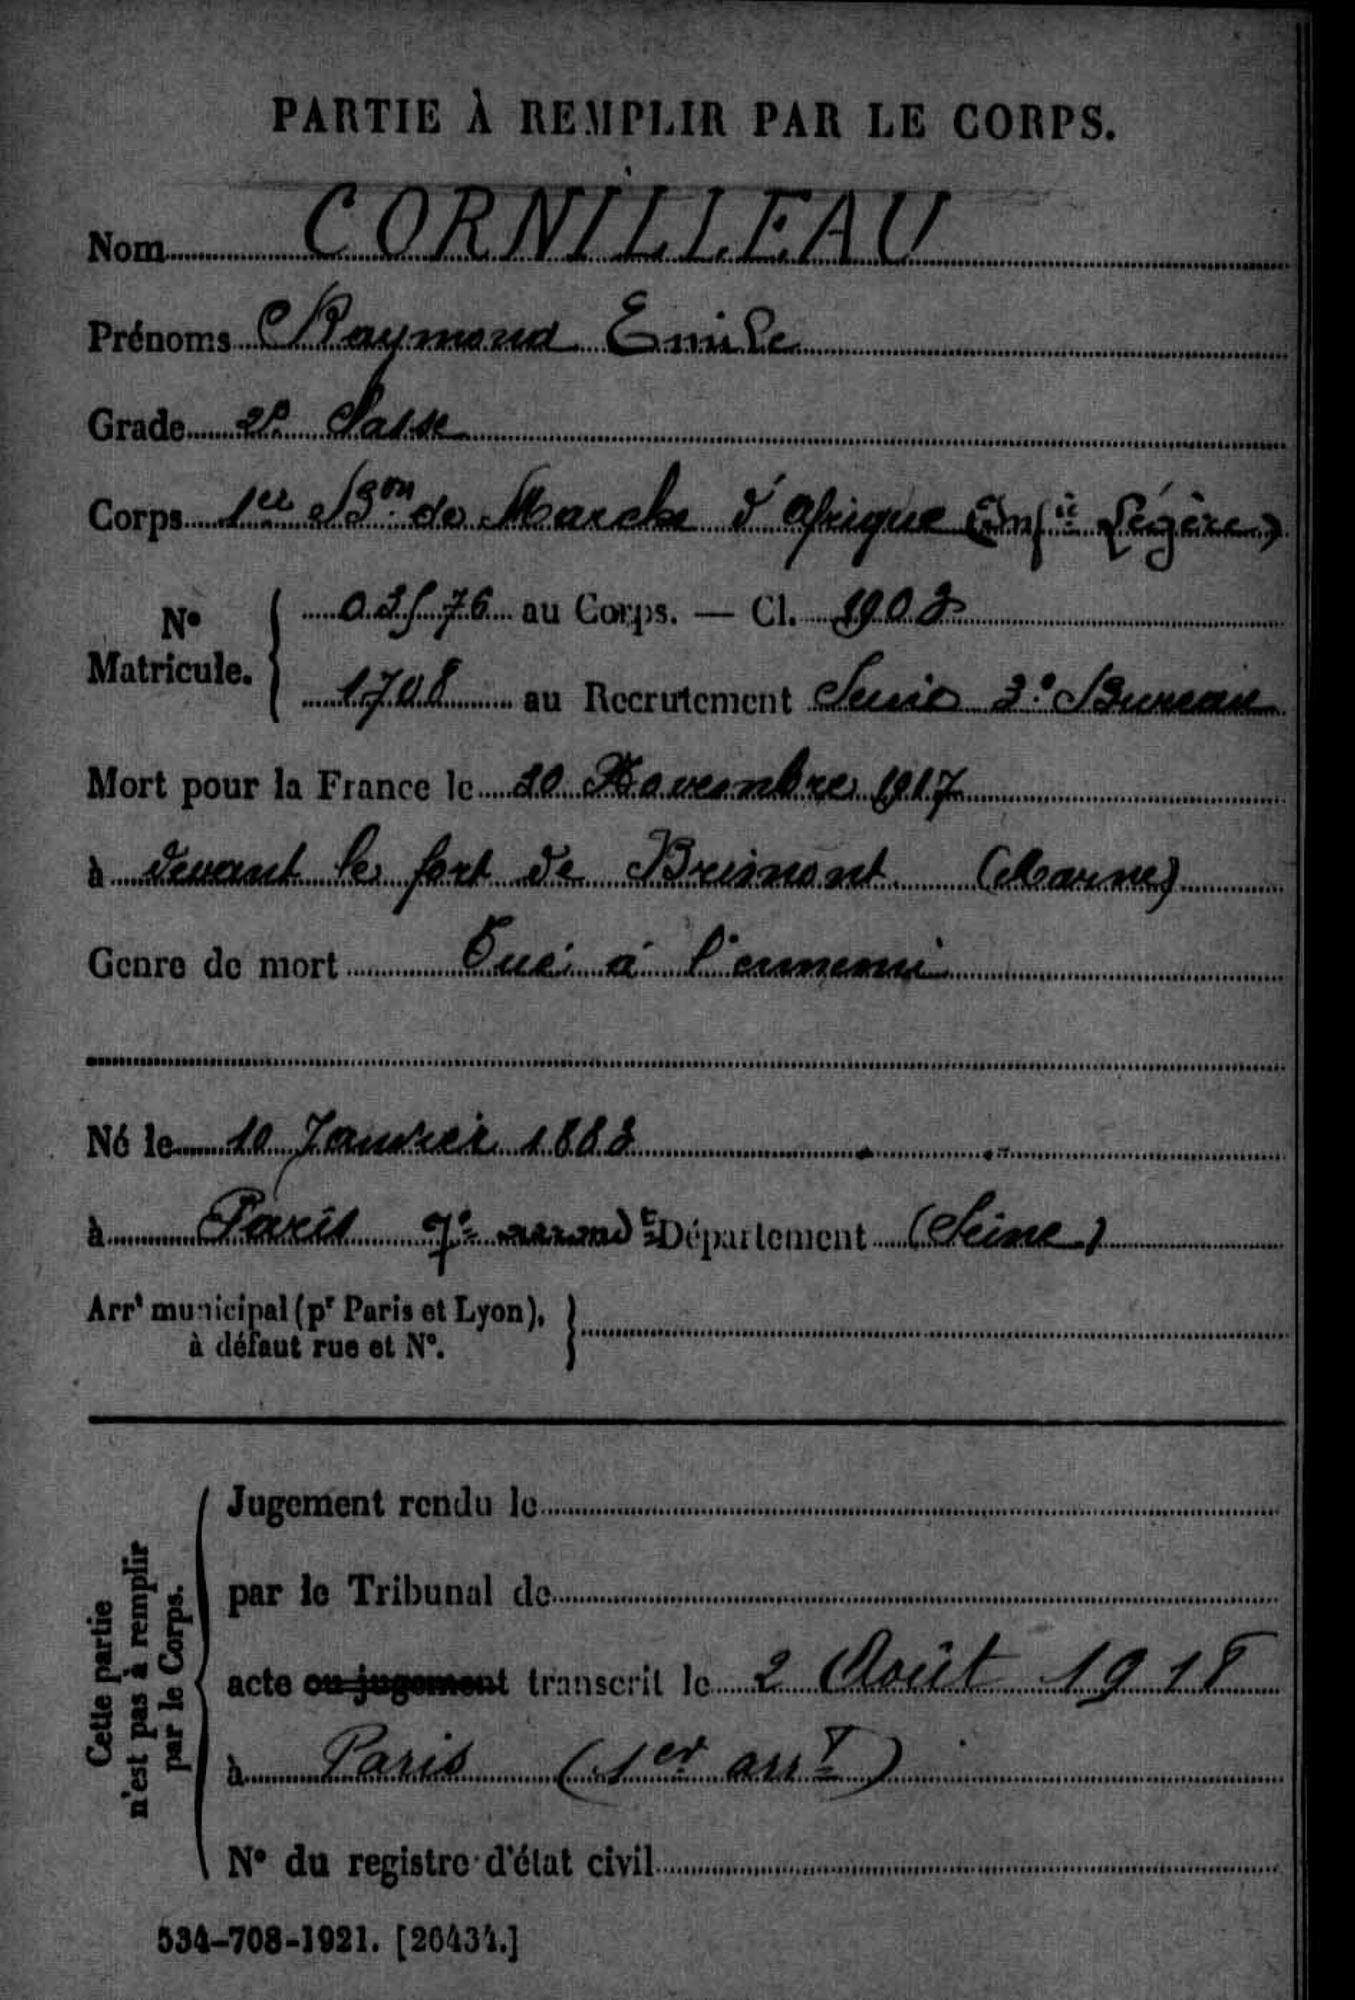 PARTIE À REMPLIR PAR LE CORPS.
Nom CORNILLEAU
Prénoms Raymond Emile
Grade 2e Classe
Corps 1er Bon de Marche d'Afrique (Infie Légère)
No Matricule. 03576 au Corps. — Cl. 1903
1708 au Recrutement Seine 3e Bureau
Mort pour la France le 20 Novembre 1917
à devant le fort de Brimont (Marne)
Genre de mort Tué à l'ennemi
Né le 10 Janvier 1883
à Paris 7e arrondt Département (Seine)
Arrt municipal (pr Paris et Lyon),
à défaut rue et No.
Cette partie
n'est pas à remplir
par le Corps.
Jugement rendu le
par le Tribunal de
acte ou jugement transcrit le 2 Août 1918
à Paris (1er arrt)
No du registre d'état civil
534-708-1921. [26434.]